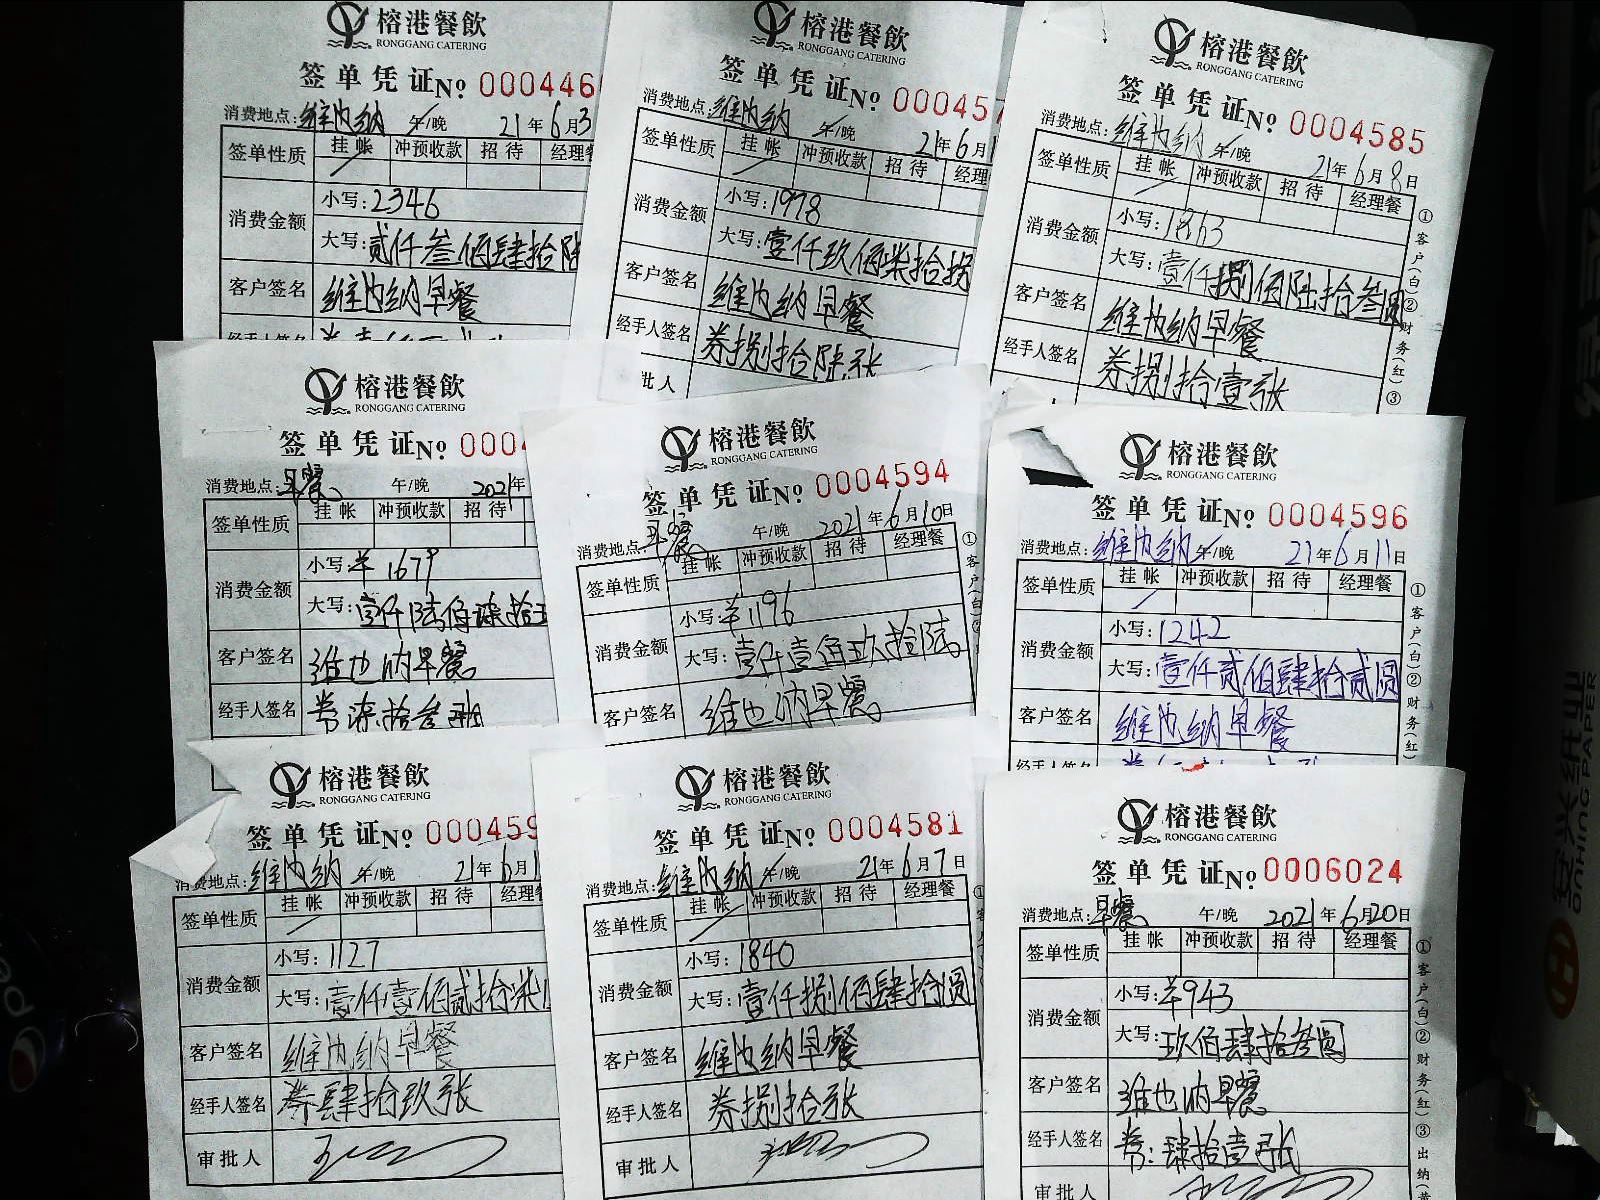 榕港餐飲
RONGGANG CATERING
签单凭证No 000446
消费地点:维也纳 午/晚 21年6月3
签单性质 挂帐 冲预收款 招待 经理餐
消费金额 小写:2346
大写:贰仟叁佰肆拾陆
客户签名 维也纳早餐
经手人签名
榕港餐飲
RONGGANG CATERING
签单凭证No 000457
消费地点:维也纳 午/晚 21年6月1
签单性质 挂帐 冲预收款 招待 经理
消费金额 小写:1978
大写:壹仟玖佰柒拾捌
客户签名 维也纳早餐
经手人签名 券捌拾陆张
批人
榕港餐飲
RONGGANG CATERING
签单凭证No 0004585
消费地点:维也纳 午/晚 21年6月8日
签单性质 挂帐 冲预收款 招待 经理餐
消费金额 小写:1863
大写:壹仟捌佰陆拾叁圆
客户签名 维也纳早餐
经手人签名 券捌拾壹张
①客户(白)②财务(红)③
榕港餐飲
RONGGANG CATERING
签单凭证No 0004
消费地点:早餐 午/晚 2021年
签单性质 挂帐 冲预收款 招待
消费金额 小写:¥1679
大写:壹仟陆佰柒拾
客户签名 维也纳早餐
经手人签名 券柒拾叁张
榕港餐飲
RONGGANG CATERING
签单凭证No 0004594
消费地点:早餐 午/晚 2021年6月10日
签单性质 挂帐 冲预收款 招待 经理餐
消费金额 小写:¥1196
大写:壹仟壹佰玖拾陆
客户签名 维也纳早餐
①客户(白)
榕港餐飲
RONGGANG CATERING
签单凭证No 0004596
消费地点:维也纳 午/晚 21年6月11日
签单性质 挂帐 冲预收款 招待 经理餐
消费金额 小写:1242
大写:壹仟贰佰肆拾贰圆
客户签名 维也纳早餐
经手人签名
①客户(白)②财务(红)
榕港餐飲
RONGGANG CATERING
签单凭证No 000459
消费地点:维也纳 午/晚 21年6月1
签单性质 挂帐 冲预收款 招待 经理餐
消费金额 小写:1127
大写:壹仟壹佰贰拾柒
客户签名 维也纳早餐
经手人签名 券肆拾玖张
审批人
榕港餐飲
RONGGANG CATERING
签单凭证No 0004581
消费地点:维也纳 午/晚 21年6月7日
签单性质 挂帐 冲预收款 招待 经理餐
消费金额 小写:1840
大写:壹仟捌佰肆拾圆
客户签名 维也纳早餐
经手人签名 券捌拾张
审批人
榕港餐飲
RONGGANG CATERING
签单凭证No 0006024
消费地点:早餐 午/晚 2021年6月20日
签单性质 挂帐 冲预收款 招待 经理餐
消费金额 小写:¥943
大写:玖佰肆拾叁圆
客户签名 维也纳早餐
经手人签名 券:肆拾壹张
审批人
①客户(白)②财务(红)③出纳(黄